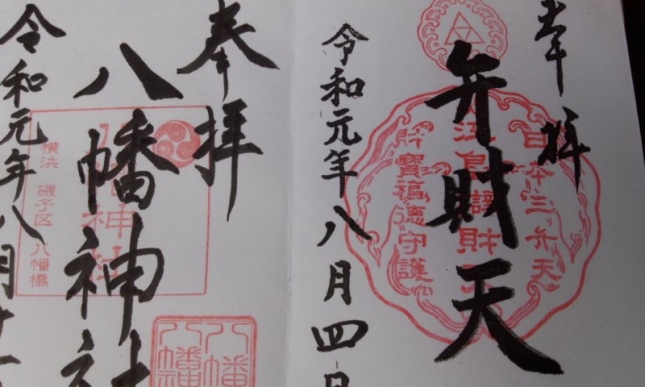 奉拝
弁財天
日本三弁天
江島辯財天
財寶福徳守護
令和元年八月四日
奉拝
八幡神社
横浜 磯子区 八幡橋
八幡
令和元年八月十